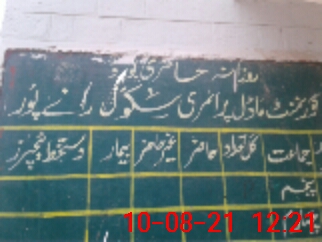 روزانہ حاضری بورڈ
گورنمنٹ ماڈل پرائمری سکول رانے پور
جماعت کل تعداد حاضر غیر حاضر بیمار دستخط ٹیچرز
پنجم
10-08-21 12:21